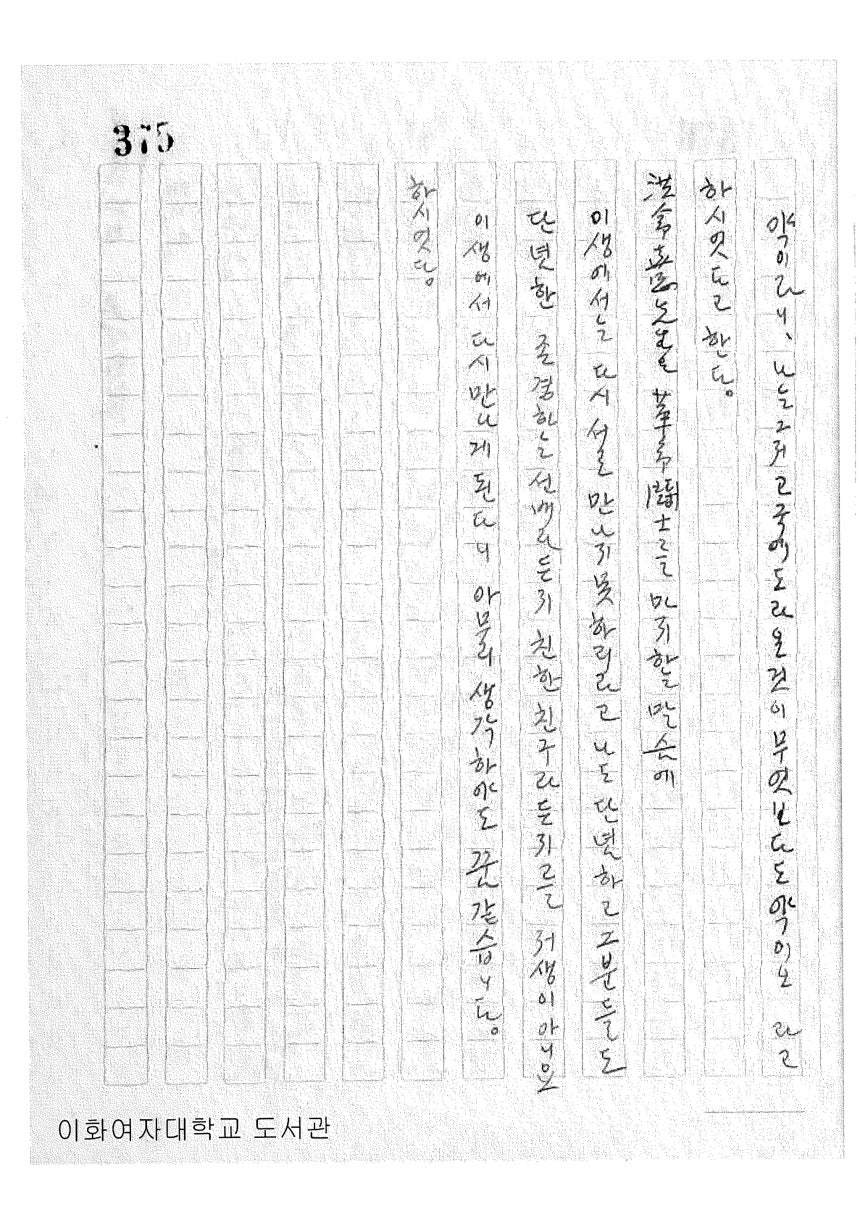 375
약이라니、 나는 그저 고국에 도라온것이 무엇보다도 약이오 라고
하시엇다고 한다。
先生은 革命鬪士를 마지할 말슴에
이생에서는 다시 서로 만나지 못하리라고 나도 단념하고 그분들도
단념한 존경하는 선배라든지 친한 친구라든지를 저생이 아니요
이생에서 다시 만나게 된다니 아무리 생각하야도 꿈 같습니다。
하시엇다。
이화여자대학교 도서관